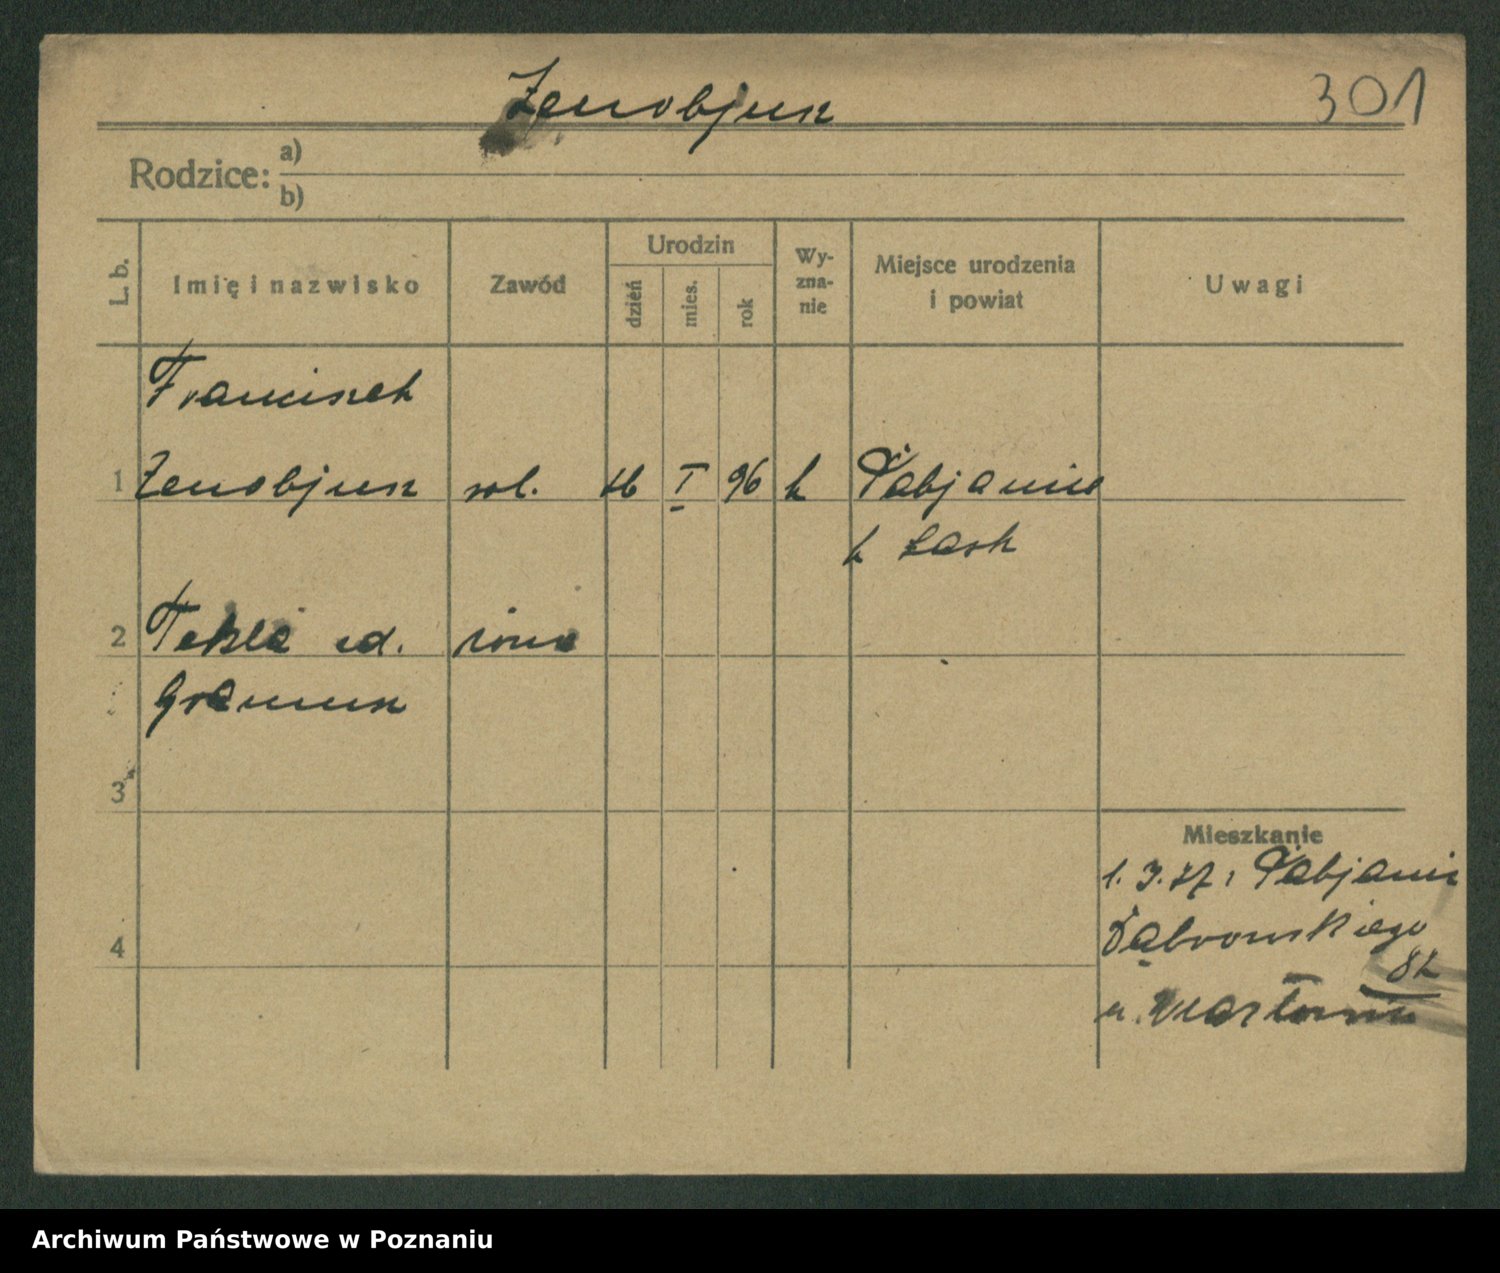 Zenobjusz
301
Rodzice: a)
b)
L. b. Imię i nazwisko Zawód Urodzin dzień mies. rok Wy-zna-nie Miejsce urodzenia i powiat Uwagi
Franciszek
1 Zenobjusz rob. 16 I 96 k Pabjanice
k Łask
2 Tekla zd. żona
3
Mieszkanie
Pabjanic
4 Dąbrowskiego
Archiwum Państwowe w Poznaniu